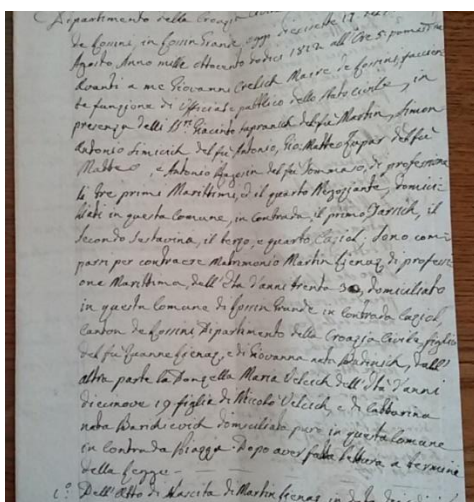 Dipartimento della Croazia
de Lossini, in Lossin Grande, oggi diecisette 17 del
Agosto, Anno mille ottocento dodici 1812 all'Ore 5 pomeridiane
Avanti a me Giovanni Craglich Maire de Lossini, facien
te funzione di Officiale pubblico dello Stato civile, in
presenza delli Sri Giacinto del fù Martin, Simon
Antonio Simicich del fù Antonio, Gio: Matteo Zupar del fù
Matteo, e Antonio Ragusin del fù Tommaso, di professione
li tre primi Marittimi, e il quarto Negoziante, domici
liati in questa Comune, in contrada, il primo il
secondo il terzo, e quarto Cagiol; sono com
parsi per contraere Matrimonio Martin di professi
one Marittima, dell'età d'anni trenta 30, domiciliato
in questa Comune di Lossin Grande in contrada Cagiol
Canton de Lossini Dipartimento della Croazia Civile, figlio
del fù e di Giovanna nata dall'
altra parte la Donzella Maria Velcich dell'età d'anni
diecinove 19 figlia di Nicolò Velcich, e di Cattarina
nata domiciliata pure in questa Comune
in contrada Biaggi. Dopo aver fatta lettura a termine
della Legge -
1.° Dell'Atto di Nascita di Martin in data